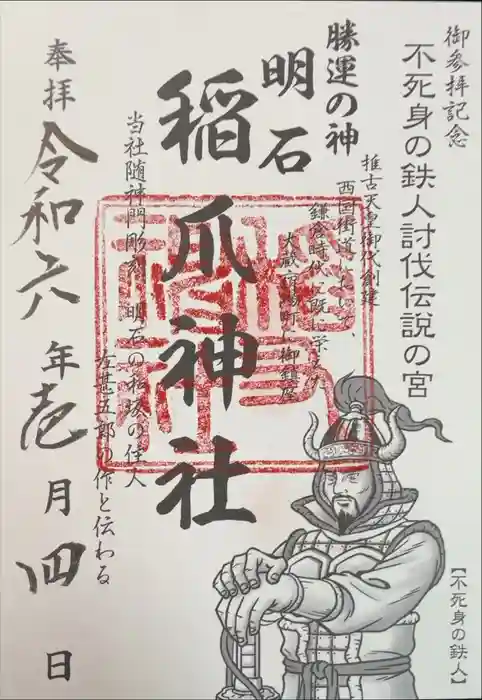 御参拝記念
不死身の鉄人討伐伝説の宮
推古天皇御代創建
西国街道において、
鎌倉時代に既に栄えた
大蔵市場町に御鎮座
勝運の神
明石
稲爪神社
当社随神門彫刻 明石の和坂の住人
左甚五郎の作と伝わる
奉拝
令和六年壱月四日
【不死身の鉄人】